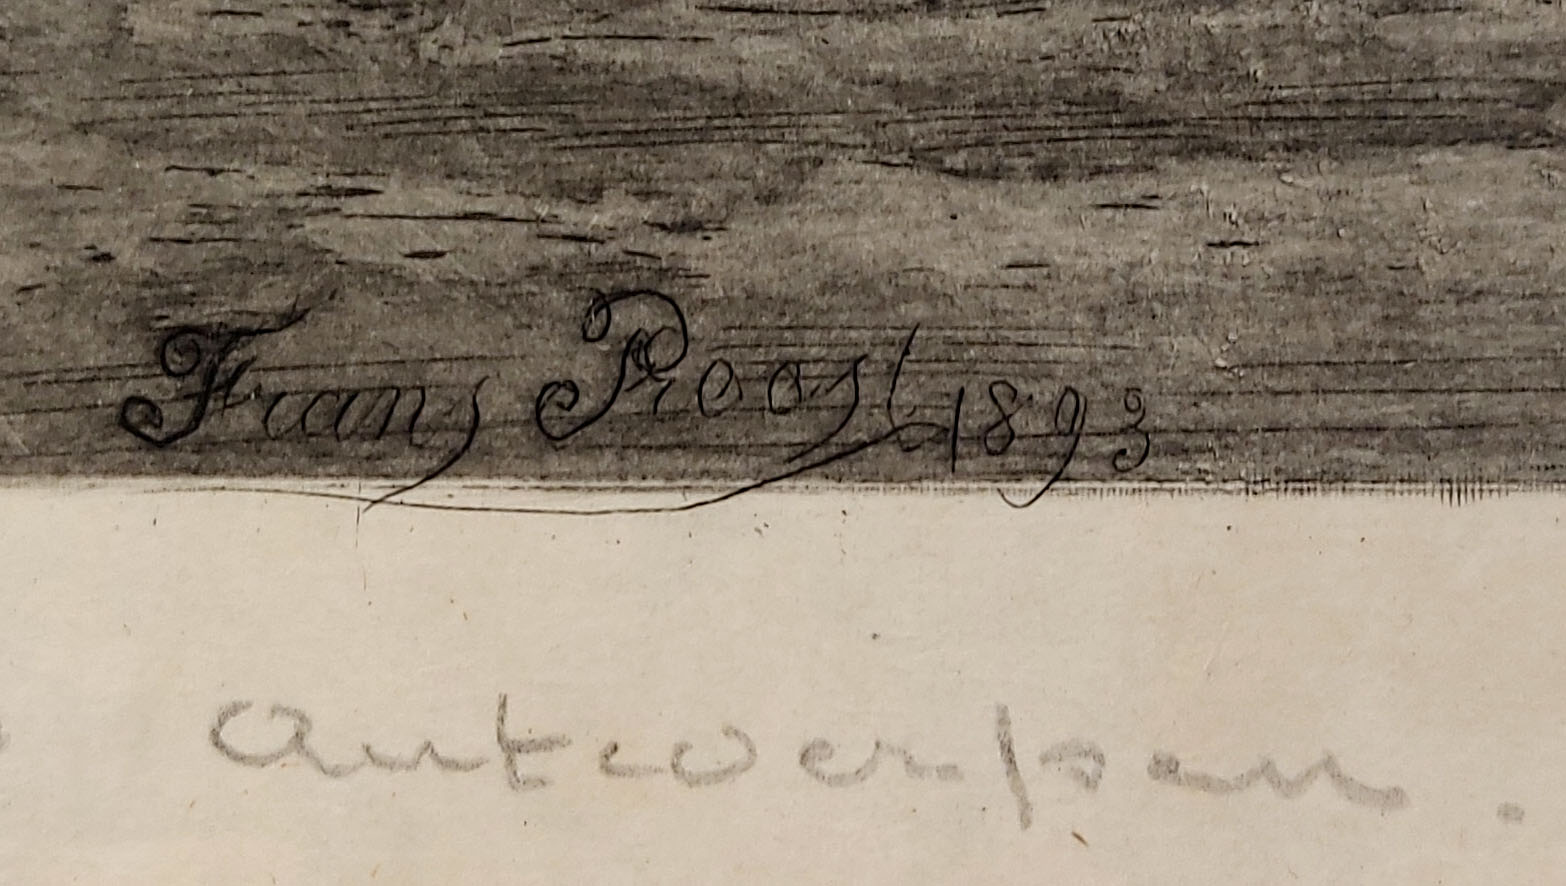 Frans Roost 1893
Antwerpen.